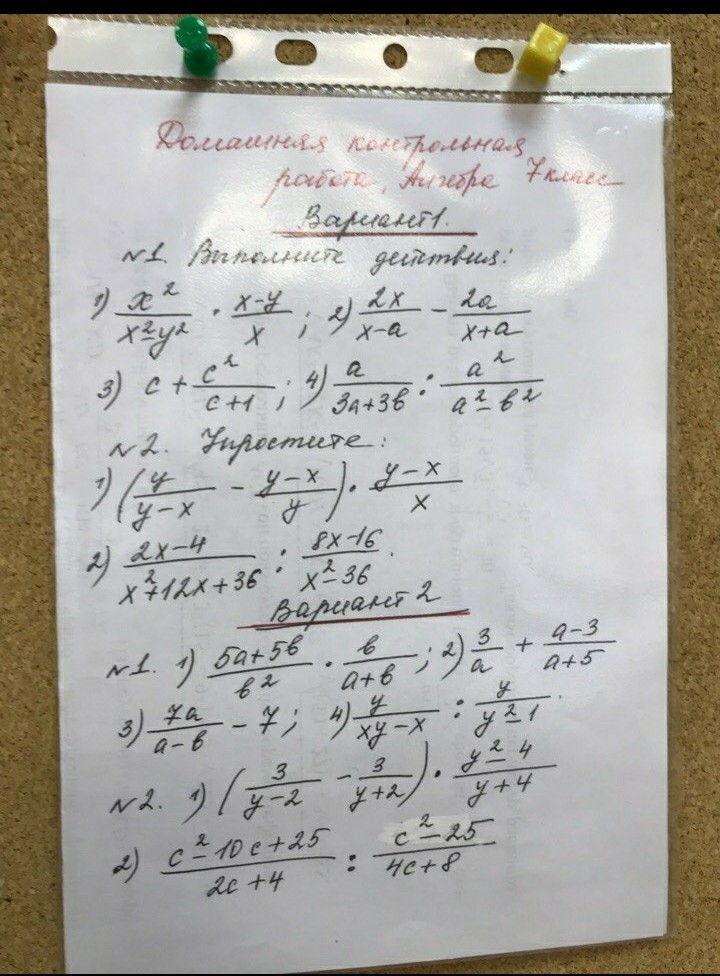 Домашняя контрольная
работа, Алгебра 7 класс
Вариант 1.
№1. Выполните действия:
1) x²/(x²-y²) · (x-y)/x ; 2) 2x/(x-a) - 2a/(x+a)
3) c + c²/(c+1) ; 4) a/(3a+3b) : a²/(a²-b²)
№2. Упростите:
1) (y/(y-x) - (y-x)/y) · (y-x)/x
2) (2x-4)/(x²+12x+36) : (8x-16)/(x²-36).
Вариант 2
№1. 1) (5a+5b)/b² · b/(a+b) ; 2) 3/a + (a-3)/(a+5)
3) 7a/(a-b) - 7; 4) y/(xy-x) : y/(y²-1).
№2. 1) (3/(y-2) - 3/(y+2)) · (y²-4)/(y+4)
2) (c²-10c+25)/(2c+4) : (c²-25)/(4c+8)